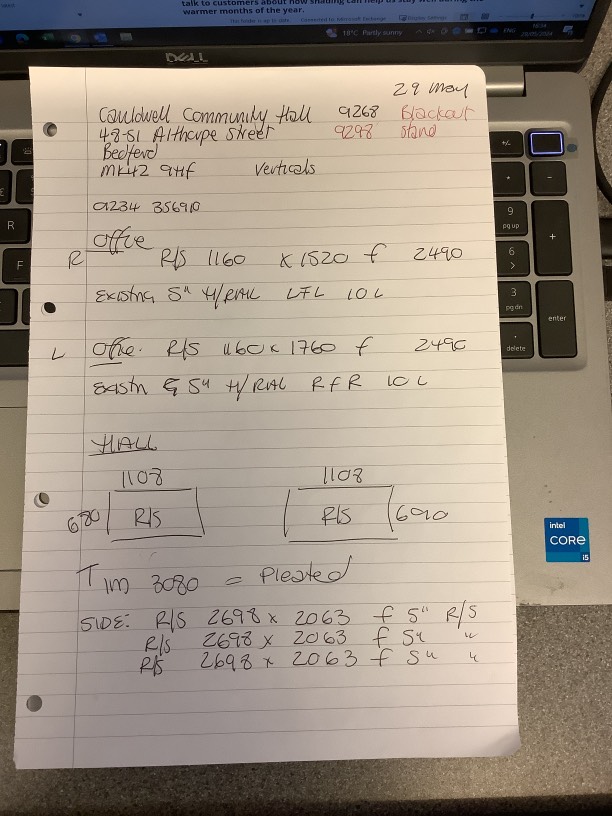 talk to customers about how shading can help us stay
warmer months of the year.
18°C Partly sunny
ENG
29/05/2024
DELL
29 May
Cauldwell Community Hall 9268 Blackout
48-51 Althorpe Street 9298 Stand
Bedford
MK42 9HF Verticals
01234 356910
Office
R R/S 1160 x 1520 f 2490
Existing 5" H/RAIL LFL 10 L
L Office. R/S 1160 x 1760 f 2490
Existn G 5" H/RAIL RFR 10 L
HALL
1108 1108
680 R/S R/S 690
Tim 3080 = Pleated
SIDE: R/S 2698 x 2063 f 5" R/S
R/S 2698 x 2063 f 5" "
R/S 2698 x 2063 f 5" "
R
F
9
pg up
6
3
pg dn
+
-
enter
delete
intel
CORE
i5